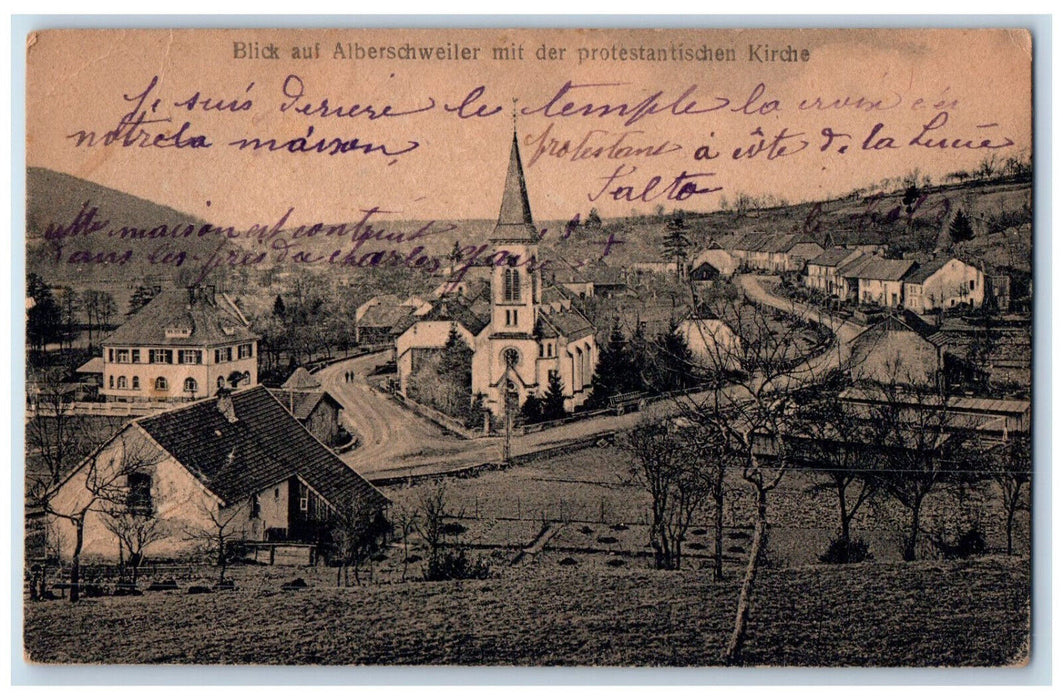 Blick auf Alberschweiler mit der protestantischen Kirche
Je suis Deriere le temple la croix c'ei
notre la maison protestans à côte de la Lucie
Salto
cette maison est contruit
dans les près du charles